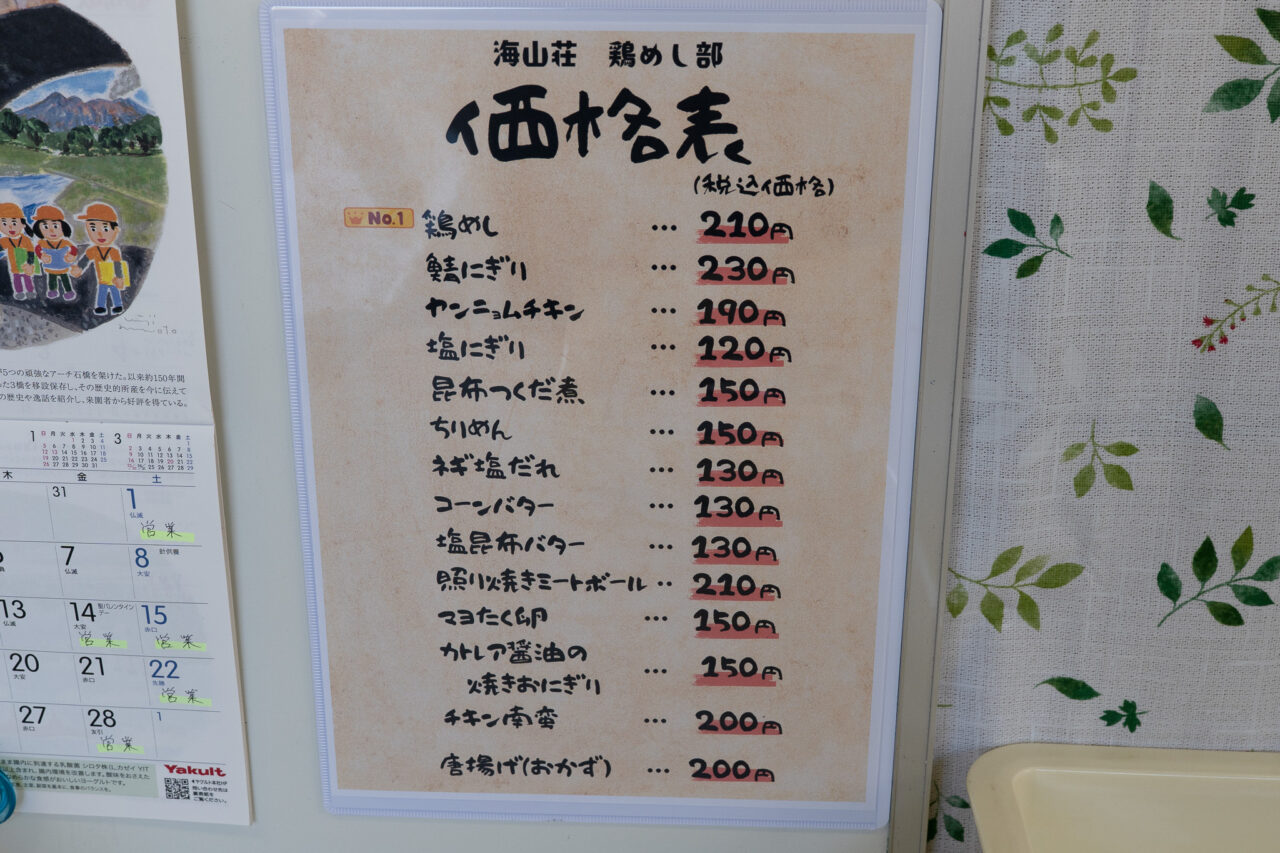 海山荘 鶏めし部
価格表
(税込価格)
No.1 鶏めし … 210円
鯖にぎり … 230円
ヤンニョムチキン … 190円
塩にぎり … 120円
昆布つくだ煮 … 150円
ちりめん … 150円
ネギ塩だれ … 130円
コーンバター … 130円
塩昆布バター … 130円
照り焼きミートボール ‥ 210円
マヨたく卵 … 150円
カトレア醤油の
焼きおにぎり … 150円
チキン南蛮 … 200円
唐揚げ(おかず) … 200円
5つの頑強なアーチ石橋を架けた。以来約150年間
た3橋を移設保存し、その歴史的所産を今に伝えて
の歴史や逸話を紹介し、来園者から好評を得ている。
1 日 月 火 水 木 金 土
3 日 月 火 水 木 金 土
木 金 土
31 1
仏滅
営業
7 8
仏滅 大安 針供養
13 14 15
仏滅 大安 聖バレンタインデー 赤口
営業 営業
20 21 22
大安 赤口 先勝
営業
27 28 1
赤口 友引
営業
Yakult